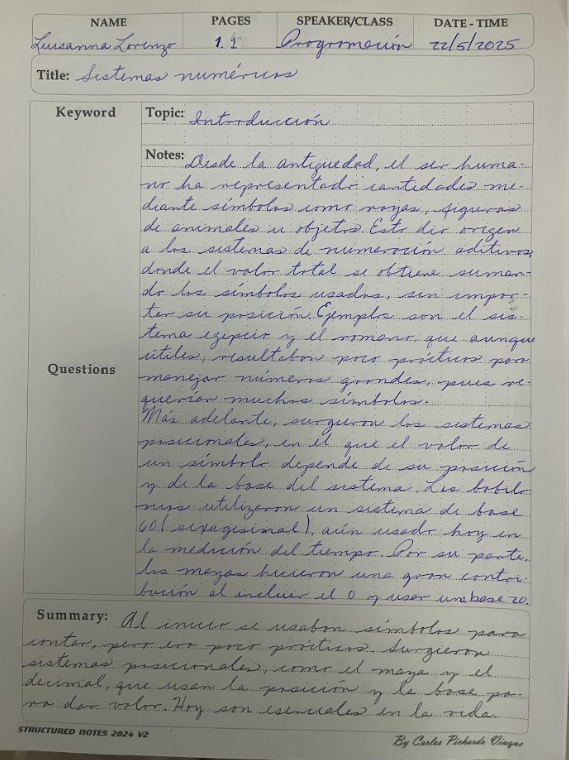 NAME PAGES SPEAKER/CLASS DATE - TIME
Luisanna Lorenzo 1.1 Programación 22/5/2025
Title: Sistemas numéricos
Keyword
Topic: Introducción
Notes: Desde la antiguedad, el ser huma-
no ha representado cantidades me-
diante símbolos como rayas, figuras
de animales u objetos. Esto dio origen
a los sistemas de numeración aditivos,
donde el valor total se obtiene suman-
do los símbolos usados, sin impor-
tar su posición. Ejemplos son el sis-
tema egipcio y el romano, que aunque
útiles, resultaban poco prácticos para
manejar números grandes, pues re-
querían muchos símbolos.
Más adelante, surgieron los sistemas
posicionales, en el que el valor de
un símbolo depende de su posición
y de la base del sistema. Los babilo
nios utilizaron un sistema de base
60 (sexagesimal), aún usado hoy en
la medición del tiempo. Por su parte,
los mayas hicieron una gran contri-
bución al incluir el 0 y usar una base 20.
Questions
Summary: Al inicio se usaban símbolos para
contar, pero era poco prácticos. Surgieron
sistemas posicionales, como el maya y el
decimal, que usan la posición y la base pa-
ra dar valor. Hoy son esenciales en la vida.
STRUCTURED NOTES 2024 V2
By Carlos Pichardo Viuque